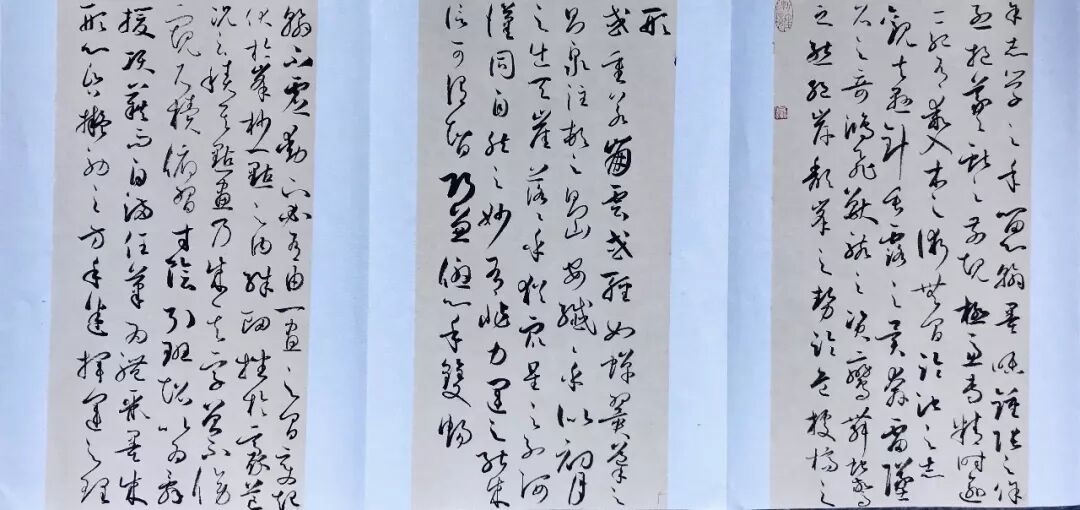 余志學之年留心翰墨味鍾張之餘
烈挹羲獻之前規極慮專精時逾
二紀有乖入木之術無間臨池之志
觀夫懸針垂露之異奔雷墜
石之奇鴻飛獸駭之資鸞舞蛇驚
之態絕岸頹峰之勢臨危據槁之
形
或重若崩雲或輕如蟬翼導之
則泉注頓之則山安纖纖乎似初月
之出天崖落落乎猶眾星之列河
漢同自然之妙有非力運之能成
信可謂智巧兼優心手雙暢
翰不虛動下必有由一畫之間變起
伏於峰杪一點之內殊衄挫於毫芒
況云積其點畫乃成其字曾不傍
窺尺牘俯習寸陰引班超以為辭
援項籍而自滿任筆為體聚墨成
形心昏擬效之方手迷揮運之理